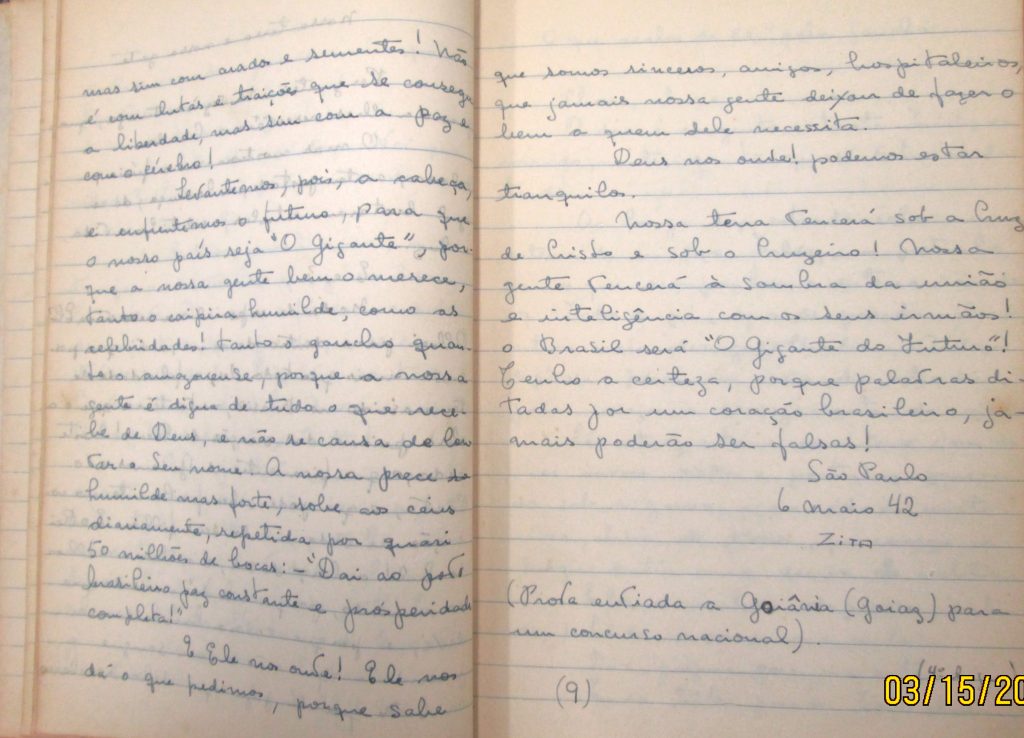 mas sim com arados e sementes! Não
é com lutas e traições que se consegu
a liberdade, mas sim com a paz e
com o cérebro!
Levantemos, pois, a cabeça,
e enfrentemos o futuro, para que
o nosso país seja "O Gigante", por-
que a nossa gente bem o merece,
tanto o caipira humilde, como as
celebridades! tanto o gaucho quan-
to o amazonense, porque a nossa
gente é digna de tudo o que rece-
be de Deus, e não se cansa de lou
tar o Seu nome. A nossa prece
humilde mas forte, sobe aos céus
diariamente, repetida por quasi
50 milhões de bocas: - "Dai ao
brasileiro paz constante e prosperidade
completa!"
E Ele nos ouve! Ele nos
dá o que pedimos, porque sabe
que somos sinceros, amigos, hospitaleiros,
que jamais nossa gente deixou de fazer o
bem a quem dele necessita.
Deus nos ouve! podemos estar
tranquilos.
Nossa terra vencerá sob a Cruz
de Cristo e sob o Cruzeiro! Nossa
gente vencerá à sombra da união
e inteligência com os seus irmãos!
o Brasil será "O Gigante do Futuro"!
Tenho a certeza, porque palavras di-
tadas por um coração brasileiro, ja-
mais poderão ser falsas!
São Paulo
6 Maio 42
Zita
(Prova enviada a Goiânia (Goiaz) para
um concurso nacional).
(9)
03/15/20